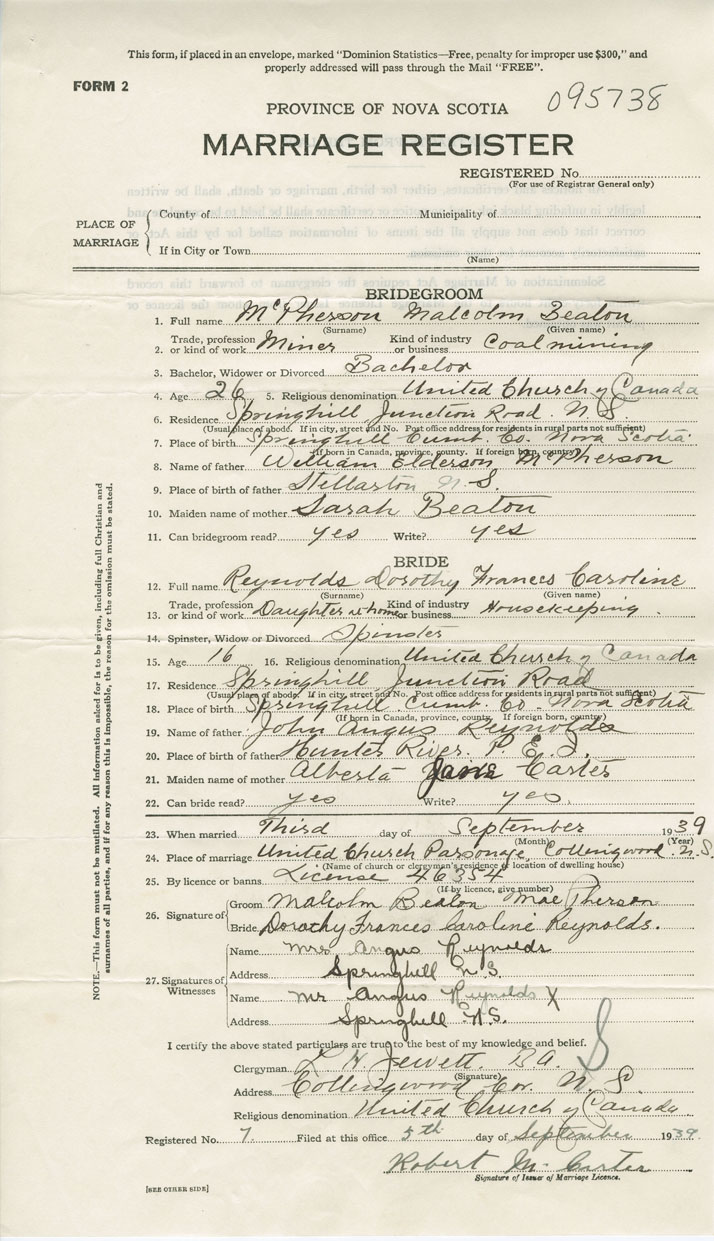 This form, if placed in an envelope, marked "Dominion Statistics—Free, penalty for improper use $300," and
properly addressed will pass through the Mail "FREE".
FORM 2
095738
PROVINCE OF NOVA SCOTIA
MARRIAGE REGISTER
REGISTERED No.
(For use of Registrar General only)
PLACE OF MARRIAGE
County of Municipality of
If in City or Town
(Name)
BRIDEGROOM
1. Full name McPherson Malcolm Beaton
(Surname) (Given name)
2. Trade, profession or kind of work Miner Kind of industry or business Coal mining
3. Bachelor, Widower or Divorced Bachelor
4. Age 26 5. Religious denomination United Church of Canada
6. Residence Springhill Junction Road. N.S.
(Usual place of abode. If in city, street and No. Post office address for residents in rural parts not sufficient)
7. Place of birth Springhill Cumb. Co. Nova Scotia
(If born in Canada, province, county. If foreign born, country)
8. Name of father William Elderson McPherson
9. Place of birth of father Stellarton N.S.
10. Maiden name of mother Sarah Beaton
11. Can bridegroom read? yes Write? yes
BRIDE
12. Full name Reynolds Dorothy Frances Caroline
(Surname) (Given name)
13. Trade, profession or kind of work Daughter at home Kind of industry or business Housekeeping.
14. Spinster, Widow or Divorced Spinster
15. Age 16 16. Religious denomination United Church of Canada
17. Residence Springhill Junction Road
(Usual place of abode. If in city, street and No. Post office address for residents in rural parts not sufficient)
18. Place of birth Springhill Cumb. Co. Nova Scotia
(If born in Canada, province, county. If foreign born, country)
19. Name of father John Angus Reynolds
20. Place of birth of father Hunter River. P.E.I.
21. Maiden name of mother Alberta Jane Carter
22. Can bride read? yes Write? yes.
23. When married Third day of September 1939
(Month) (Year)
24. Place of marriage United Church Parsonage, Collingwood N.S.
(Name of church or clergyman's residence or location of dwelling house)
25. By licence or banns License 46354
(If by licence, give number)
26. Signature of
Groom Malcolm Beaton MacPherson
Bride Dorothy Frances Caroline Reynolds.
27. Signatures of Witnesses
Name Mrs Angus Reynolds
Address Springhell N.S.
Name Mr Angus Reynolds X
Address Springhell N.S.
I certify the above stated particulars are true to the best of my knowledge and belief.
Clergyman L H Jewett. BA.
(Signature)
Address Collingwood Cor. N.S.
Religious denomination United Church of Canada
Registered No. 7 Filed at this office 5th day of September 1939.
Robert M. Carter
Signature of Issuer of Marriage Licence.
[SEE OTHER SIDE]
NOTE.—This form must not be mutilated. All information asked for is to be given, including full Christian and
surnames of all parties, and if for any reason this is impossible, the reason for the omission must be stated.